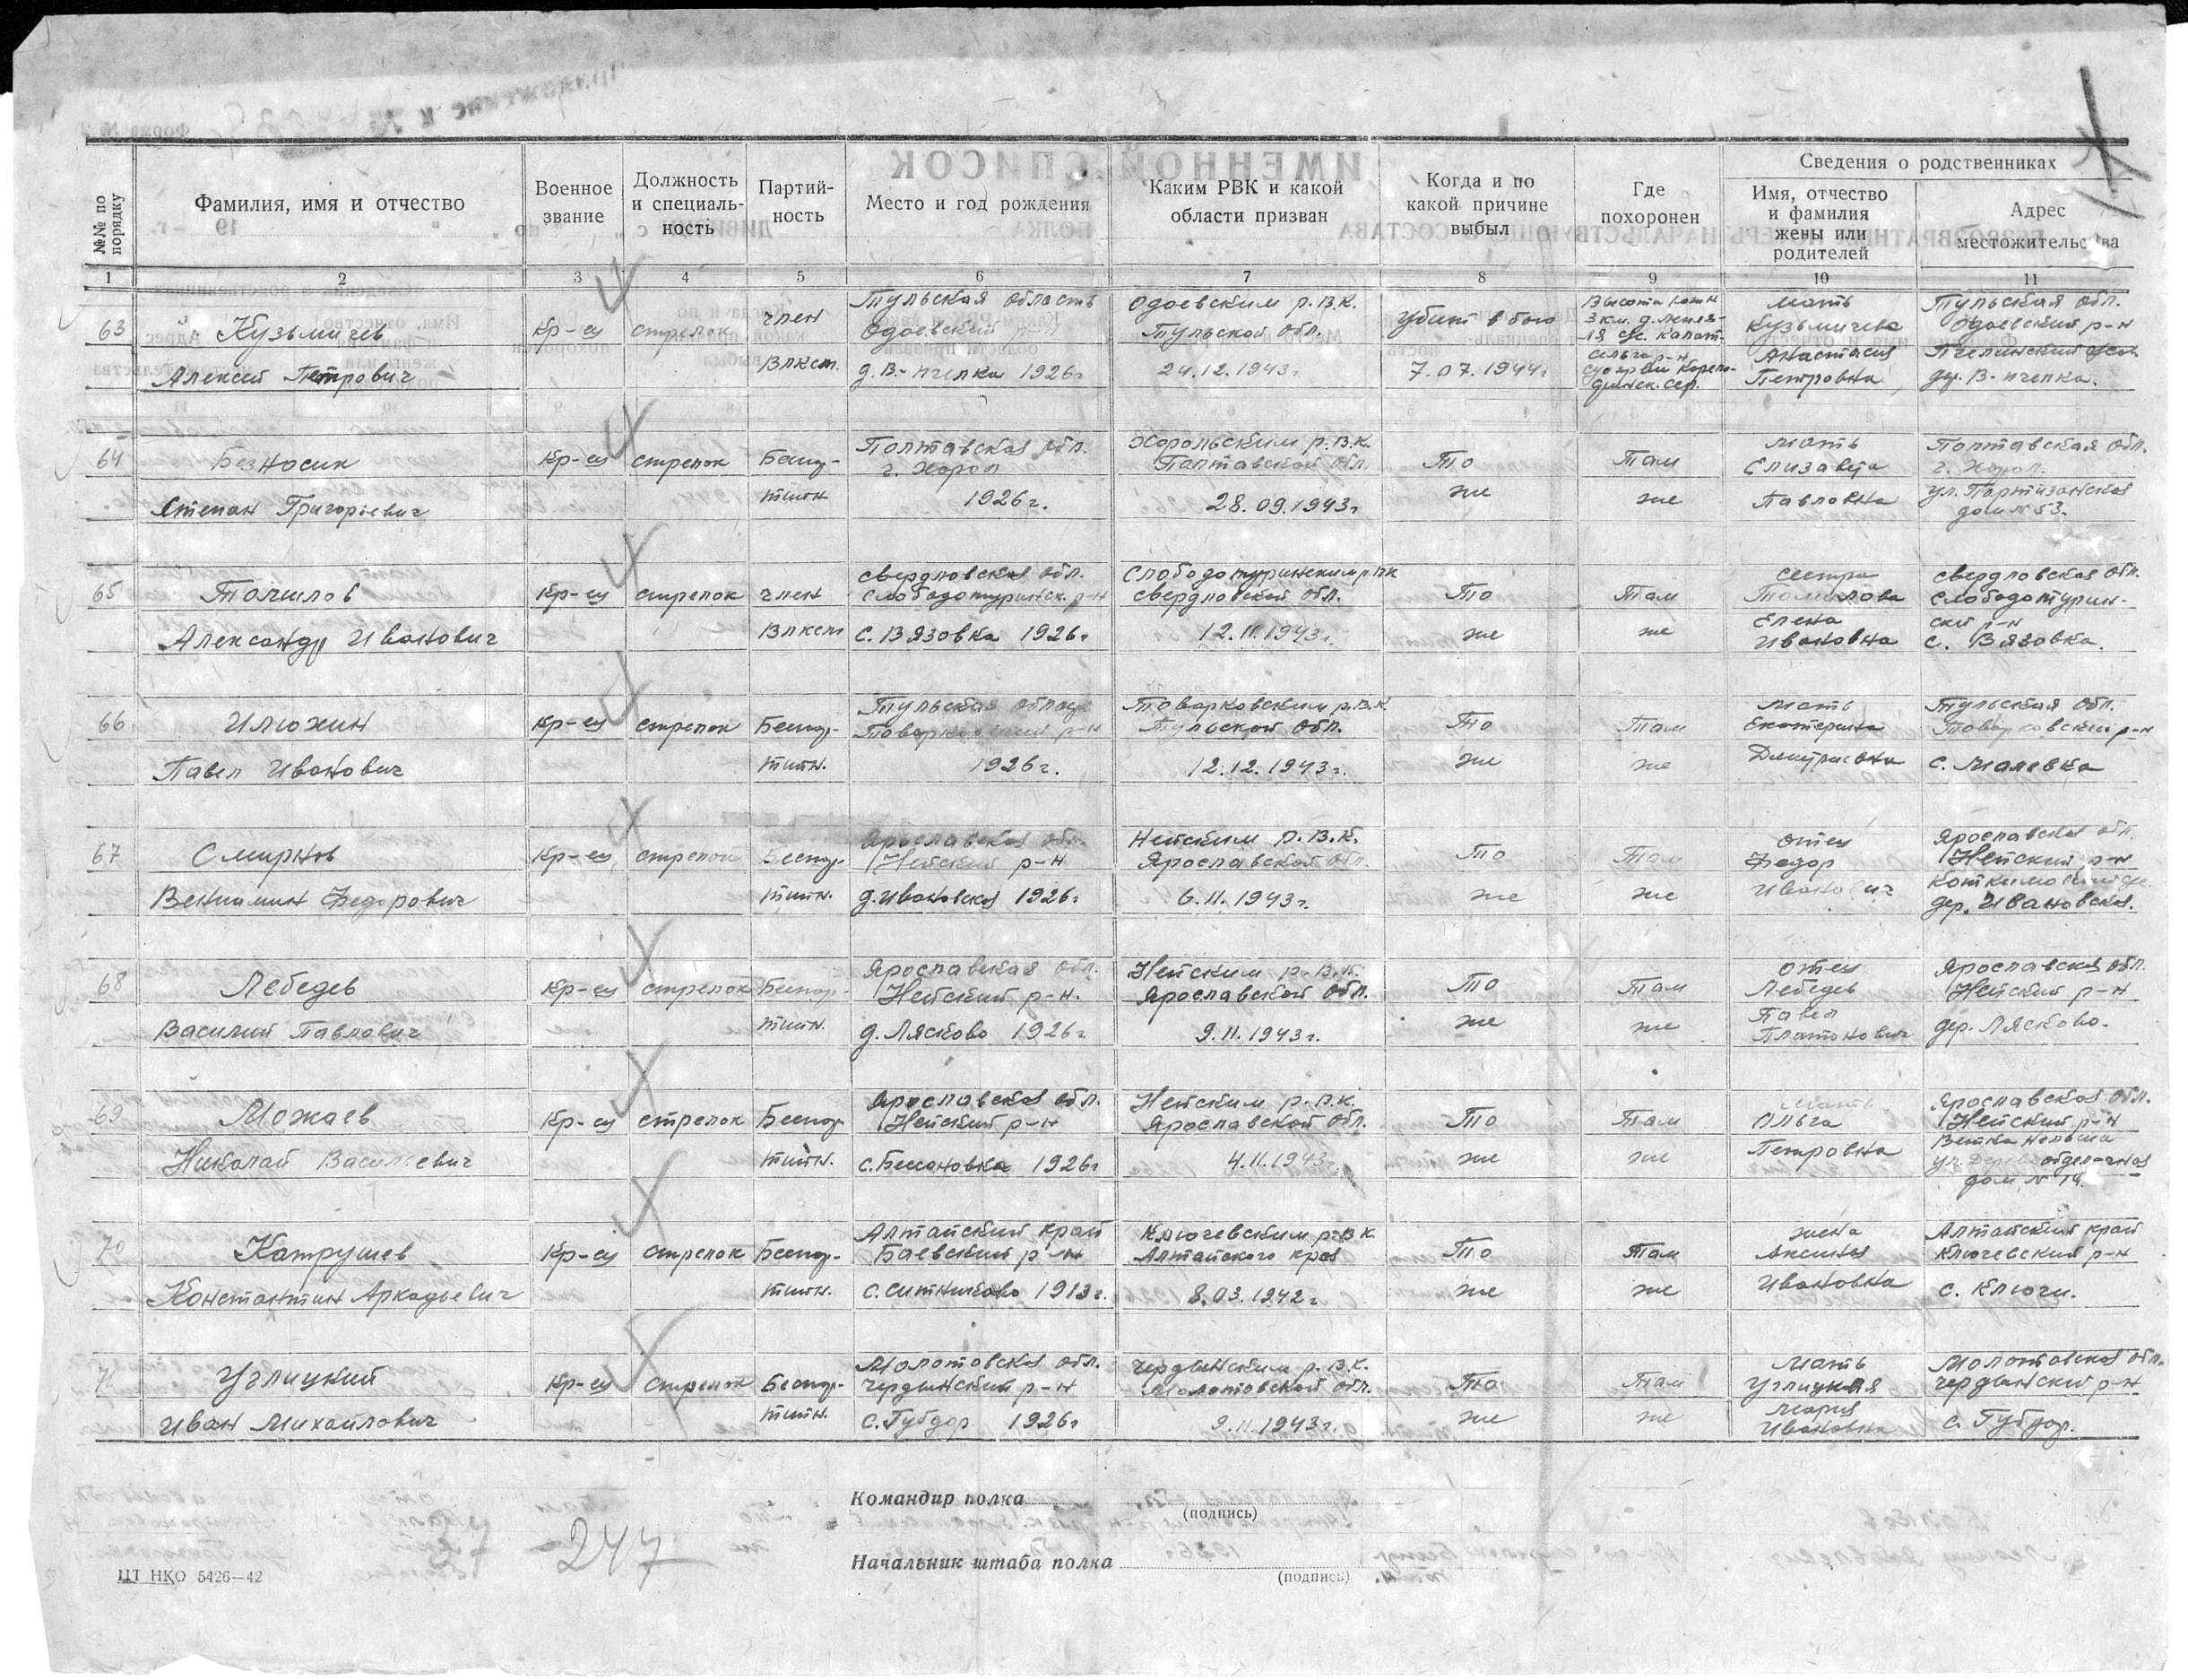 Сведения о родственниках
№№ по порядку
Фамилия, имя и отчество
Военное звание
Должность и специаль-ность
Партий-ность
Место и год рождения
Каким РВК и какой области призван
Когда и по какой причине выбыл
Где похоронен
Имя, отчество и фамилия жены или родителей
Адрес местожительства
1 2 3 4 5 6 7 8 9 10 11
63 Кузьмичев Кр-ец стрелок член Тульская область Одоевский р-н Одоевским р.в.к. Тульской обл. Убит в бою Высота 3 км. д. мать Кузьмичева Тульская обл. Одоевский р-н
Алексей Петрович Влксм. д. В-пчелка 1926г 24.12.1943г. 7.07.1944г. Анастасия Петровна Пчелинский дер. В-пчелка.
64 Безносик Кр-ец стрелок Беспар- Полтавская обл. г. Хорол Хорольским р.в.к. Полтавской обл. То Там мать Елизавета Полтавская обл. г. Хорол.
Степан Григорьевич тийн 1926г. 28.09.1943г же же Павловна ул. Партизанская дом №53.
65 Томилов Кр-ец стрелок член Свердловская обл. Слободотуринск. р-н Слободотуринским рвк Свердловской обл. То Там сестра Томилова Свердловская обл. Слободотурин-
Александр Иванович Влксм с. Вязовка 1926г 12.11.1943г. же же Елена Ивановна ский р-н с. Вязовка.
66 Илюхин Кр-ец стрелок Беспар- Тульская область Товарковский р-н Товарковским р.в.к Тульской обл. То Там мать Екатерина Тульская обл. Товарковский р-н
Павел Иванович тийн. 1926г. 12.12.1943г. же же Дмитриевна с. Малевка
67 Смирнов Кр-ец стрелок Беспар- Ярославская обл. Нейский р-н Нейским р.в.к. Ярославской обл. То Там отец Федор Ярославская обл. Нейский р-н
Вениамин Федорович тийн. д. Ивановская 1926г 6.11.1943г. же же Иванович дер. Ивановская.
68 Лебедев Кр-ец стрелок Беспар- Ярославская обл. Нейский р-н. Нейским р.в.к. Ярославской обл. То Там отец Лебедев Ярославская обл. Нейский р-н
Василий Павлович тийн. д. Лясково 1926г 9.11.1943г. же же Павел Платонович дер. Лясково.
69 Можаев Кр-ец стрелок Беспар- Ярославская обл. Нейский р-н Нейским р.в.к. Ярославской обл. То Там мать Ольга Ярославская обл. Нейский р-н
Николай Васильевич тийн. 1926г 4.11.1943г. же же Петровна ул. дом №
70 Катрушев Кр-ец стрелок Беспар- Алтайский край Баевский р-н Ключевским р.в.к Алтайского края То Там жена Аксинья Алтайский край Ключевский р-н
Константин Аркадьевич тийн. с. Ситниково 1913г. 8.03.1942г. же же Ивановна с. Ключи.
71 Углицкий Кр-ец стрелок Беспар- Молотовская обл. Чердынский р-н Чердынским р.в.к. Молотовской обл. То Там мать Углицкая Молотовская обл. Чердынский р-н
Иван Михайлович тийн. с. Губдор 1926г 9.11.1943г. же же Мария Ивановна с. Губдор.
Командир полка
(подпись)
247
Начальник штаба полка
(подпись)
ЦТ НКО 5426—42